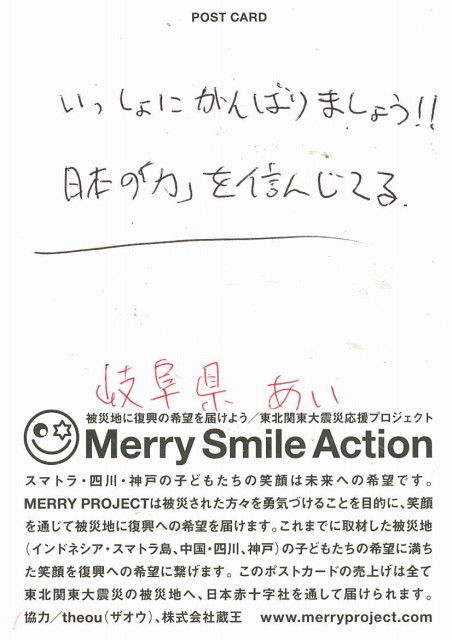 POST CARD
いっしょにがんばりましょう!!
日本の「力」を信んじてる.
岐阜県 あい
被災地に復興の希望を届けよう／東北関東大震災応援プロジェクト
Merry Smile Action
スマトラ・四川・神戸の子どもたちの笑顔は未来への希望です。
MERRY PROJECTは被災された方々を勇気づけることを目的に、笑顔
を通じて被災地に復興への希望を届けます。これまでに取材した被災地
（インドネシア・スマトラ島、中国・四川、神戸）の子どもたちの希望に満ち
た笑顔を復興への希望に繋げます。このポストカードの売上げは全て
東北関東大震災の被災地へ、日本赤十字社を通して届けられます。
協力／theou（ザオウ）、株式会社蔵王 www.merryproject.com